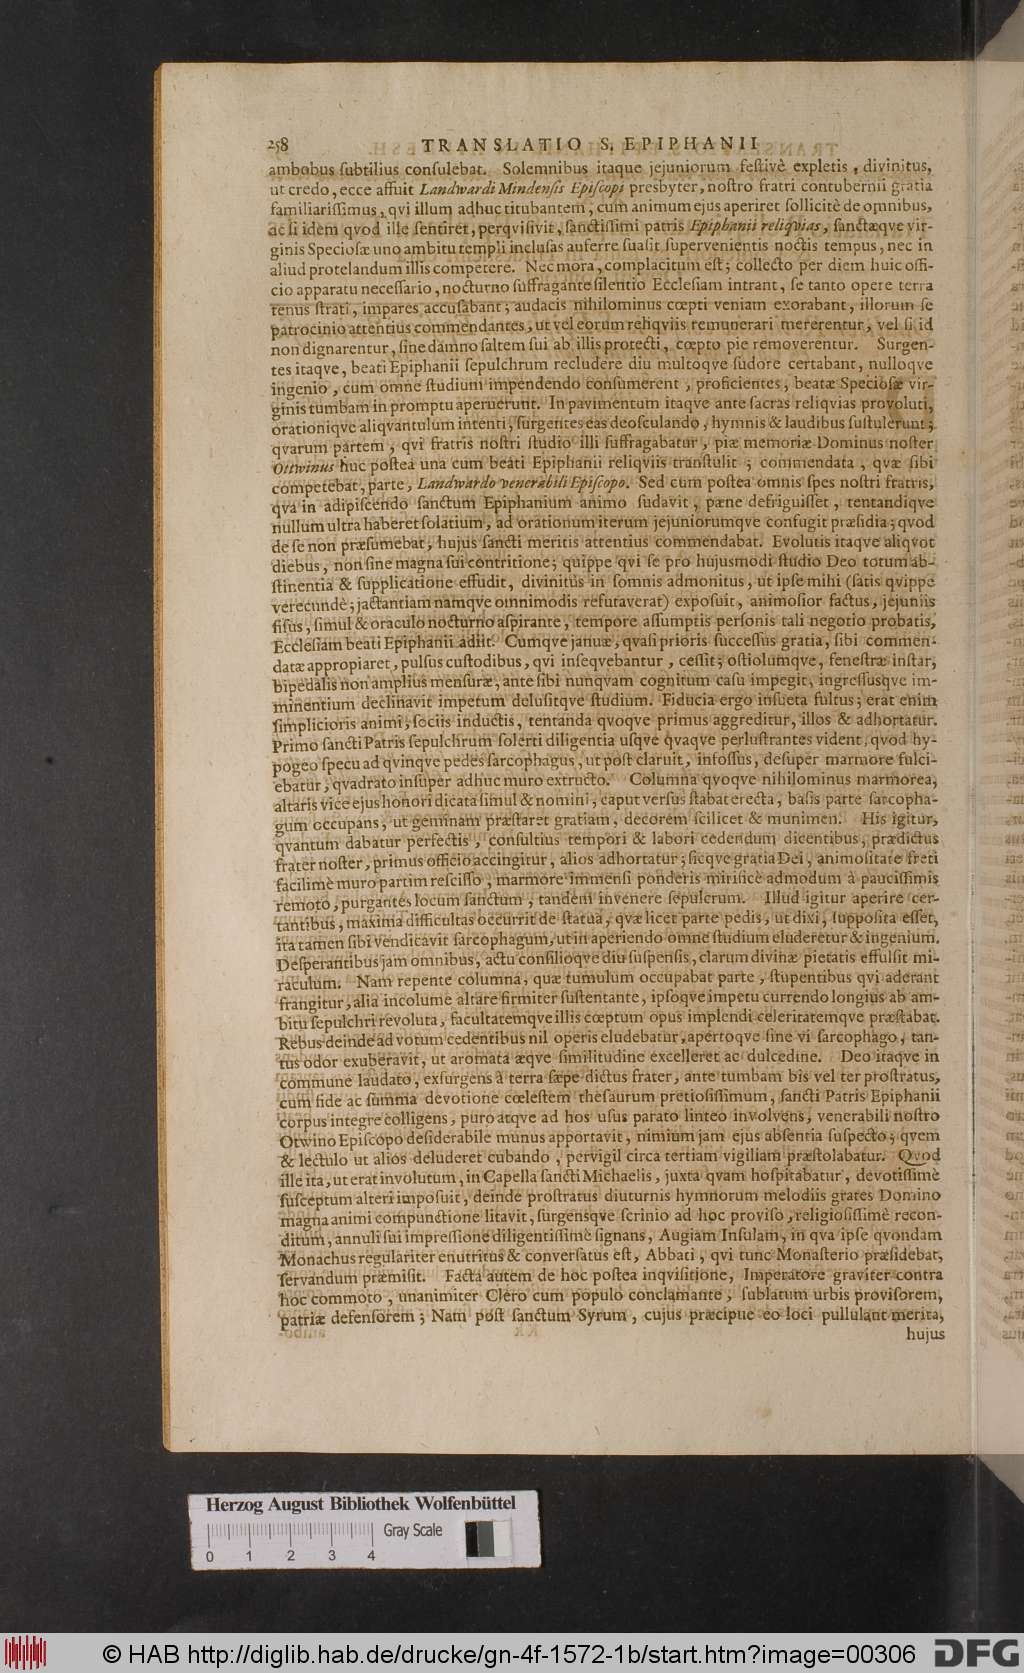 258 TRANSLATIO S. EPIPHANII
ambobus ſubtilius conſulebat. Solemnibus itaque jejuniorum feſtivè expletis, divinitus,
ut credo, ecce affuit Landwardi Mindenſis Epiſcopi presbyter, noſtro fratri contubernii gratia
familiariſſimus, qvi illum adhuc titubantem, cum animum ejus aperiret ſollicitè de omnibus,
ac ſi idem qvod ille ſentiret, perqviſivit, ſanctiſſimi patris Epiphanii reliqvias, ſanctæqve vir-
ginis Specioſæ uno ambitu templi incluſas auferre ſuaſit ſupervenientis noctis tempus, nec in
aliud protelandum illis competere. Nec mora, complacitum eſt; collecto per diem huic offi-
cio apparatu neceſſario, nocturno ſuffragante ſilentio Eccleſiam intrant, ſe tanto opere terra
tenus ſtrati, impares accuſabant; audacis nihilominus cœpti veniam exorabant, illorum ſe
patrocinio attentius commendantes, ut vel eorum reliqviis remunerari mererentur, vel ſi id
non dignarentur, ſine damno ſaltem ſui ab illis protecti, cœpto pie removerentur. Surgen-
tes itaqve, beati Epiphanii ſepulchrum recludere diu multoqve ſudore certabant, nulloqve
ingenio, cum omne ſtudium impendendo conſumerent, proficientes, beatæ Specioſæ vir-
ginis tumbam in promptu aperuerunt. In pavimentum itaqve ante ſacras reliqvias provoluti,
orationiqve aliqvantulum intenti, ſurgentes eas deoſculando, hymnis & laudibus ſuſtulerunt;
qvarum partem, qvi fratris noſtri ſtudio illi ſuffragabatur, piæ memoriæ Dominus noſter
Ottwinus huc poſtea una cum beati Epiphanii reliqviis tranſtulit; commendata, qvæ ſibi
competebat, parte, Landwardo venerabili Epiſcopo. Sed cum poſtea omnis ſpes noſtri fratris,
qva in adipiſcendo ſanctum Epiphanium animo ſudavit, pæne defriguiſſet, tentandiqve
nullum ultra haberet ſolatium, ad orationum iterum jejuniorumqve confugit præſidia; qvod
de ſe non præſumebat, hujus ſancti meritis attentius commendabat. Evolutis itaqve aliqvot
diebus, non ſine magna ſui contritione; quippe qvi ſe pro hujusmodi ſtudio Deo totum ab-
ſtinentia & ſupplicatione effudit, divinitus in ſomnis admonitus, ut ipſe mihi (ſatis qvippe
verecundè; jactantiam namqve omnimodis refutaverat) expoſuit, animoſior factus, jejuniis
fiſus, ſimul & oraculo nocturno aſpirante, tempore aſſumptis perſonis tali negotio probatis,
Eccleſiam beati Epiphanii adiit. Cumqve januæ, qvaſi prioris ſucceſſus gratia, ſibi commen-
datæ appropiaret, pulſus cuſtodibus, qvi inſeqvebantur, ceſſit; oſtiolumqve, feneſtræ inſtar,
bipedalis non amplius menſuræ, ante ſibi nunqvam cognitum caſu impegit, ingreſſusqve im-
minentium declinavit impetum deluſitqve ſtudium. Fiducia ergo inſueta fultus; erat enim
ſimplicioris animi, ſociis inductis, tentanda qvoqve primus aggreditur, illos & adhortatur.
Primo ſancti Patris ſepulchrum ſolerti diligentia uſqve qvaqve perluſtrantes vident, qvod hy-
pogeo ſpecu ad qvinqve pedes ſarcophagus, ut poſt claruit, infoſſus, deſuper marmore fulci-
ebatur, qvadrato inſuper adhuc muro extructo. Columna qvoqve nihilominus marmorea,
altaris vice ejus honori dicata ſimul & nomini, caput verſus ſtabat erecta, baſis parte ſarcopha-
gum occupans, ut geminam præſtaret gratiam, decorem ſcilicet & munimen. His igitur,
qvantum dabatur perfectis, conſultius tempori & labori cedendum dicentibus, prædictus
frater noſter, primus officio accingitur, alios adhortatur; ſicqve gratia Dei, animoſitate freti
facilimè muro partim reſciſſo, marmore immenſi ponderis mirificè admodum à pauciſſimis
remoto, purgantes locum ſanctum, tandem invenere ſepulcrum. Illud igitur aperire cer-
tantibus, maxima difficultas occurrit de ſtatua, qvæ licet parte pedis, ut dixi, ſuppoſita eſſet,
ita tamen ſibi vendicavit ſarcophagum, ut in aperiendo omne ſtudium eluderetur & ingenium.
Deſperantibus jam omnibus, actu conſilioqve diu ſuſpenſis, clarum divinæ pietatis effulſit mi-
raculum. Nam repente columna, quæ tumulum occupabat parte, ſtupentibus qvi aderant
frangitur, alia incolume altare firmiter ſuſtentante, ipſoqve impetu currendo longius ab am-
bitu ſepulchri revoluta, facultatemqve illis cœptum opus implendi celeritatemqve præſtabat.
Rebus deinde ad votum cedentibus nil operis eludebatur, apertoqve ſine vi ſarcophago, tan-
tus odor exuberavit, ut aromata æqve ſimilitudine excelleret ac dulcedine. Deo itaqve in
commune laudato, exſurgens à terra ſæpe dictus frater, ante tumbam bis vel ter proſtratus,
cum fide ac ſumma devotione cœleſtem theſaurum pretioſiſſimum, ſancti Patris Epiphanii
corpus integre colligens, puro atqve ad hos uſus parato linteo involvens, venerabili noſtro
Otwino Epiſcopo deſiderabile munus apportavit, nimium jam ejus abſentia ſuſpecto; qvem
& lectulo ut alios deluderet cubando, pervigil circa tertiam vigiliam præſtolabatur. Qvod
ille ita, ut erat involutum, in Capella ſancti Michaelis, juxta qvam hoſpitabatur, devotiſſimè
ſuſceptum alteri impoſuit, deinde proſtratus diuturnis hymnorum melodiis grates Domino
magna animi compunctione litavit, ſurgensqve ſcrinio ad hoc proviſo, religioſiſſimè recon-
ditum, annuli ſui impreſſione diligentiſſimè ſignans, Augiam Inſulam, in qva ipſe qvondam
Monachus regulariter enutritus & converſatus eſt, Abbati, qvi tunc Monaſterio præſidebat,
ſervandum præmiſit. Facta autem de hoc poſtea inqviſitione, Imperatore graviter contra
hoc commoto, unanimiter Clero cum populo conclamante, ſublatum urbis proviſorem,
patriæ defenſorem; Nam poſt ſanctum Syrum, cujus præcipue eo loci pullulant merita,
hujus
Herzog August Bibliothek Wolfenbüttel
Gray Scale
0 1 2 3 4
© HAB http://diglib.hab.de/drucke/gn-4f-1572-1b/start.htm?image=00306 DFG